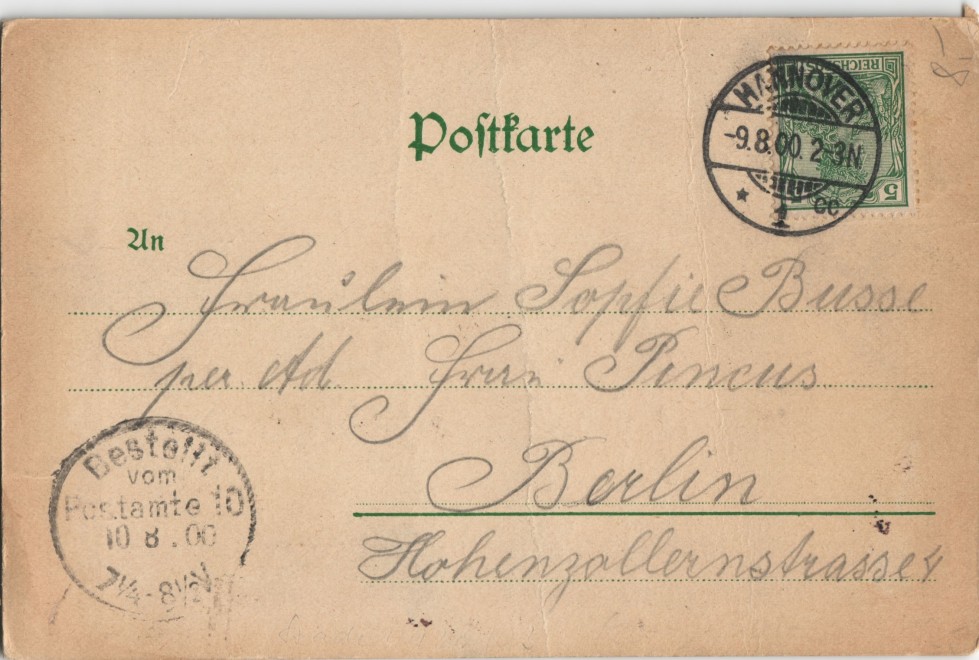 Postkarte
HANNOVER
-9.8.00. 2-3N
* 1 CC
REICHSPOST
5
An
Fräulein Sopfie Busse
per. Ad. Frau Pincus
Berlin
Hohenzollernstrasse
Bestellt
vom
Postamte 10
10 8.00
7¼-8½N